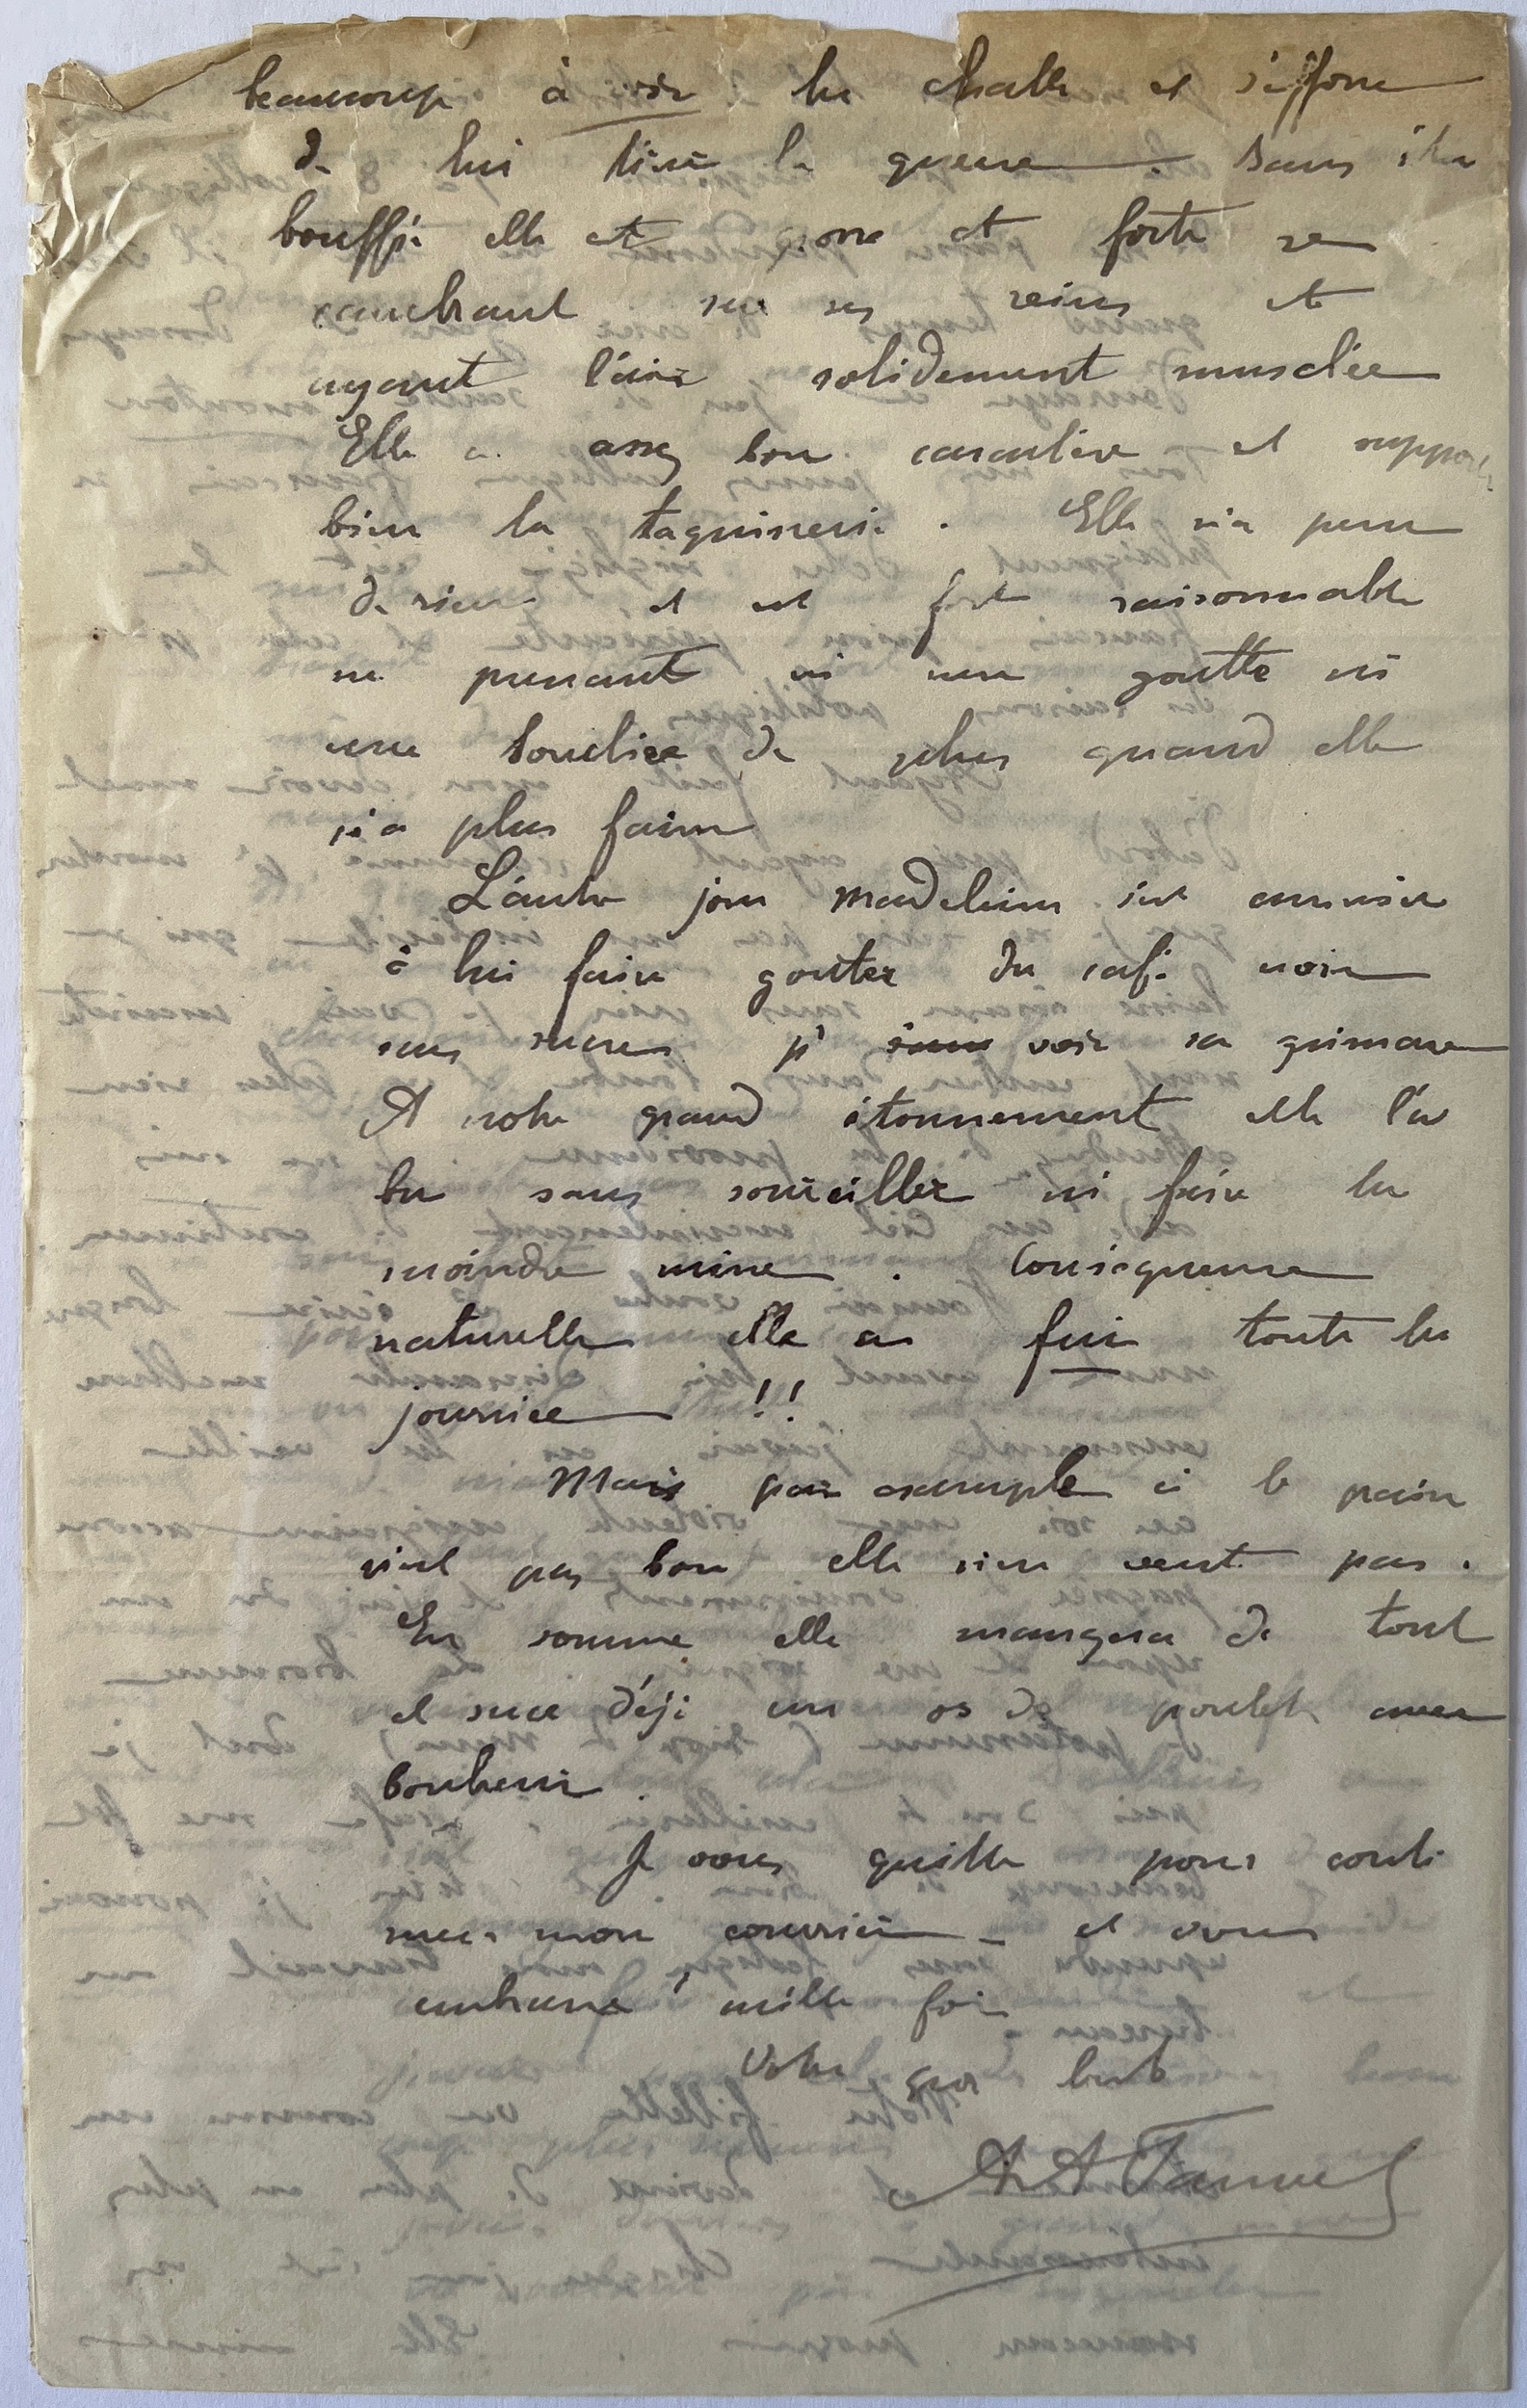 beaucoup à voir la chatte et s'efforce
de lui tirer la queue. Sans être
bouffie elle est grosse et forte se
cambrant sur ses reins et
ayant l'air solidement musclée
Elle a assez bon caractère et supporte
bien la taquinerie. Elle n'a peur
de rien et est fort raisonnable
ne prenant ni une goutte ni
une bouchée de plus quand elle
n'a plus faim
L'autre jour Madeleine s'est amusée
à lui faire gouter du café noir
sans sucre pr voir sa grimace
A notre grand étonnement elle l'a
bu sans sourciller ni faire la
moindre mine. Conséquence
naturelle elle a fui toute la
journée !!
Mais par exemple si le pain
n'est pas bon elle n'en veut pas.
En somme elle mangera de tout
et suce déjà un os de poulet avec
bonheur.
Je vous quitte pour conti
nuer mon courrier et vous
embrasse mille fois
Votre gros